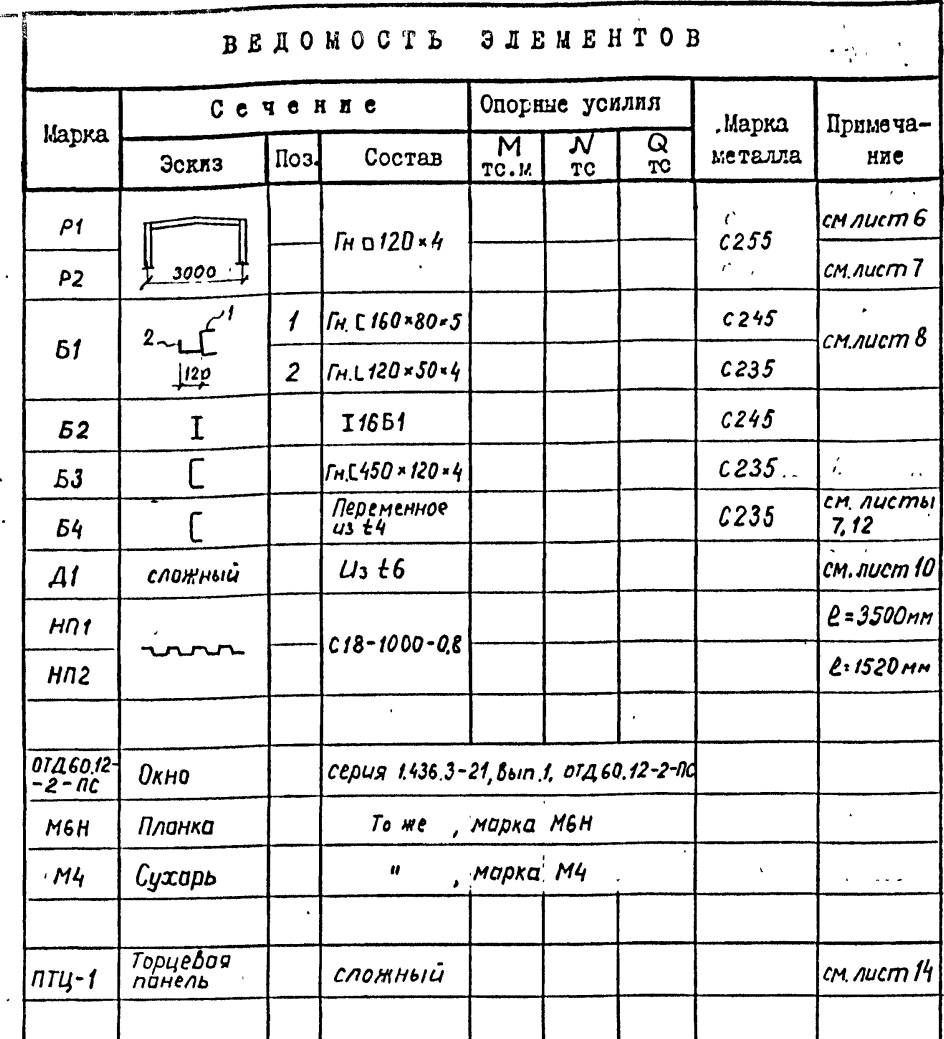 ВЕДОМОСТЬ ЭЛЕМЕНТОВ
Марка Сечение Опорные усилия Марка металла Примеча-ние
Эскиз Поз. Состав М тс.м N тс Q тс
Р1 Гн □ 120×4 С255 см лист 6
Р2 3000 см. лист 7
Б1 1 2 120 1 Гн. [ 160×80×5 С245 см. лист 8
2 Гн. L 120×50×4 С235
Б2 I I 16Б1 С245
Б3 [ Гн. [ 450×120×4 С235
Б4 [ Переменное из t4 С235 см. листы 7, 12
Д1 сложный Из t6 см. лист 10
НП1 С18-1000-0,8 ℓ=3500мм
НП2 ℓ=1520мм
ОТД60.12--2-ПС Окно серия 1.436.3-21, вып.1, ОТД60.12-2-ПС
М6Н Планка То же , марка М6Н
М4 Сухарь " , марка М4
ПТЦ-1 Торцевая панель сложный см. лист 14